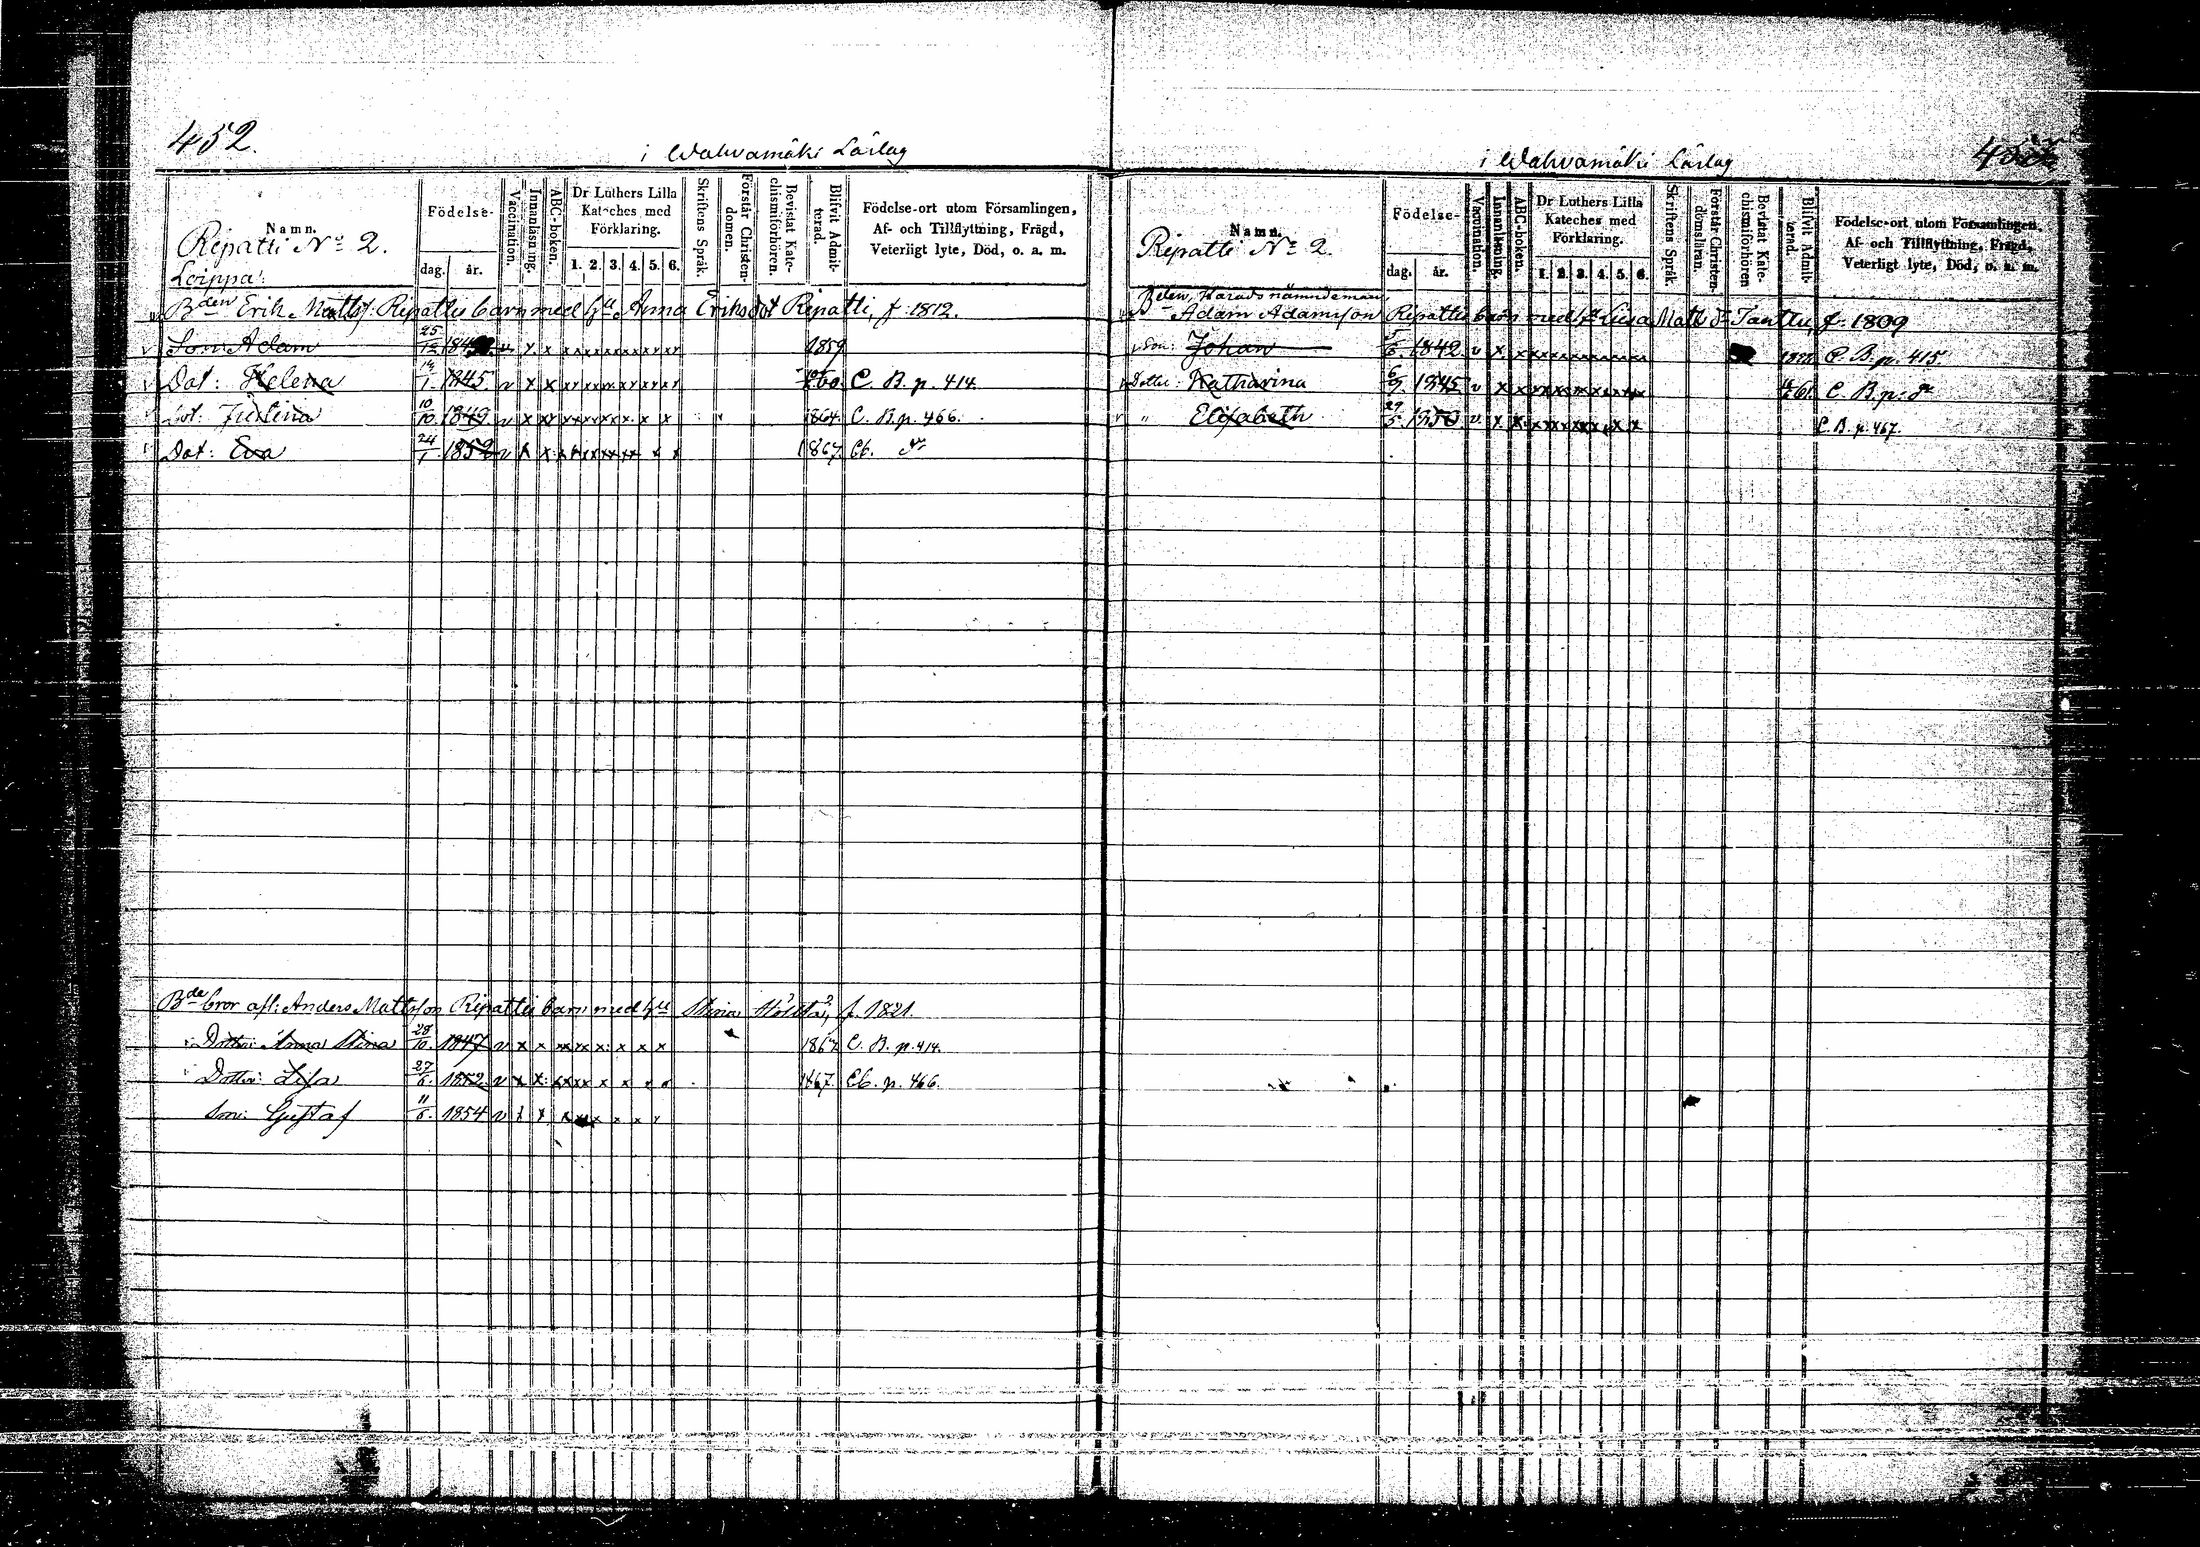 452.
i Wahvamäki Läslag
Namn.
Födelse-
dag. år.
Vaccination.
Innanläsning.
ABC-boken.
Dr Luthers Lilla Kateches med Förklaring.
1. 2. 3. 4. 5. 6.
Skriftens Språk.
Förstår Christendomen.
Bevistat Katechismiförhören.
Blifvit Admitterad.
Födelse-ort utom Församlingen,
Af- och Tillflyttning, Frägd,
Veterligt lyte, Död, o. a. m.
Ripatti No 2.
Loippa:
Bden Erik Matts: Ripattis barn med hu Anna Eriksdot Ripatti, f. 1812.
Son Adam 25/12 v x x 1859
Dot: Helena 1845 v x x C. B. p. 414
Dot: Justina 10/10 1849 v x x 1864. C. B. p. 466.
Dot: Eva 24/1 1852 v x x 1867 Cb. do
Bde bror afl: Anders Mattsson Ripattis barn med hu Stina f. 1821.
Dotter: Anna Stina 28/10 1847 v x x 1862 C. B. p. 414.
Dotter: Lisa 27/6. 1852. v x x 1867. Cb. p. 466.
Son: Gustaf 11/6. 1854 v x x
i Wahvamäki Läslag
Namn.
Födelse-
dag. år.
Vaccination.
Innanläsning.
ABC-boken.
Dr Luthers Lilla Kateches med Förklaring.
1. 2. 3. 4. 5. 6.
Skriftens Språk.
Förstår Christendomsläran.
Bevistat Katechismiförhören
Blifvit Admitterad.
Födelse-ort utom Församlingen,
Af- och Tillflyttning, Frägd,
Veterligt lyte, Död, o. a. m.
Ripatti No 2.
Bden, Häradsnämndeman
Adam Adamsson Ripattis barn med hu Liisa Matt dr Tanttu f. 1809
Son: Johan 1842 v x C. B. p. 415
Dotter: Katharina 6/9 1845 v x x 61. C. B. p: do
" Elisabeth 29/5 1850 v x x C. B. p. 467.